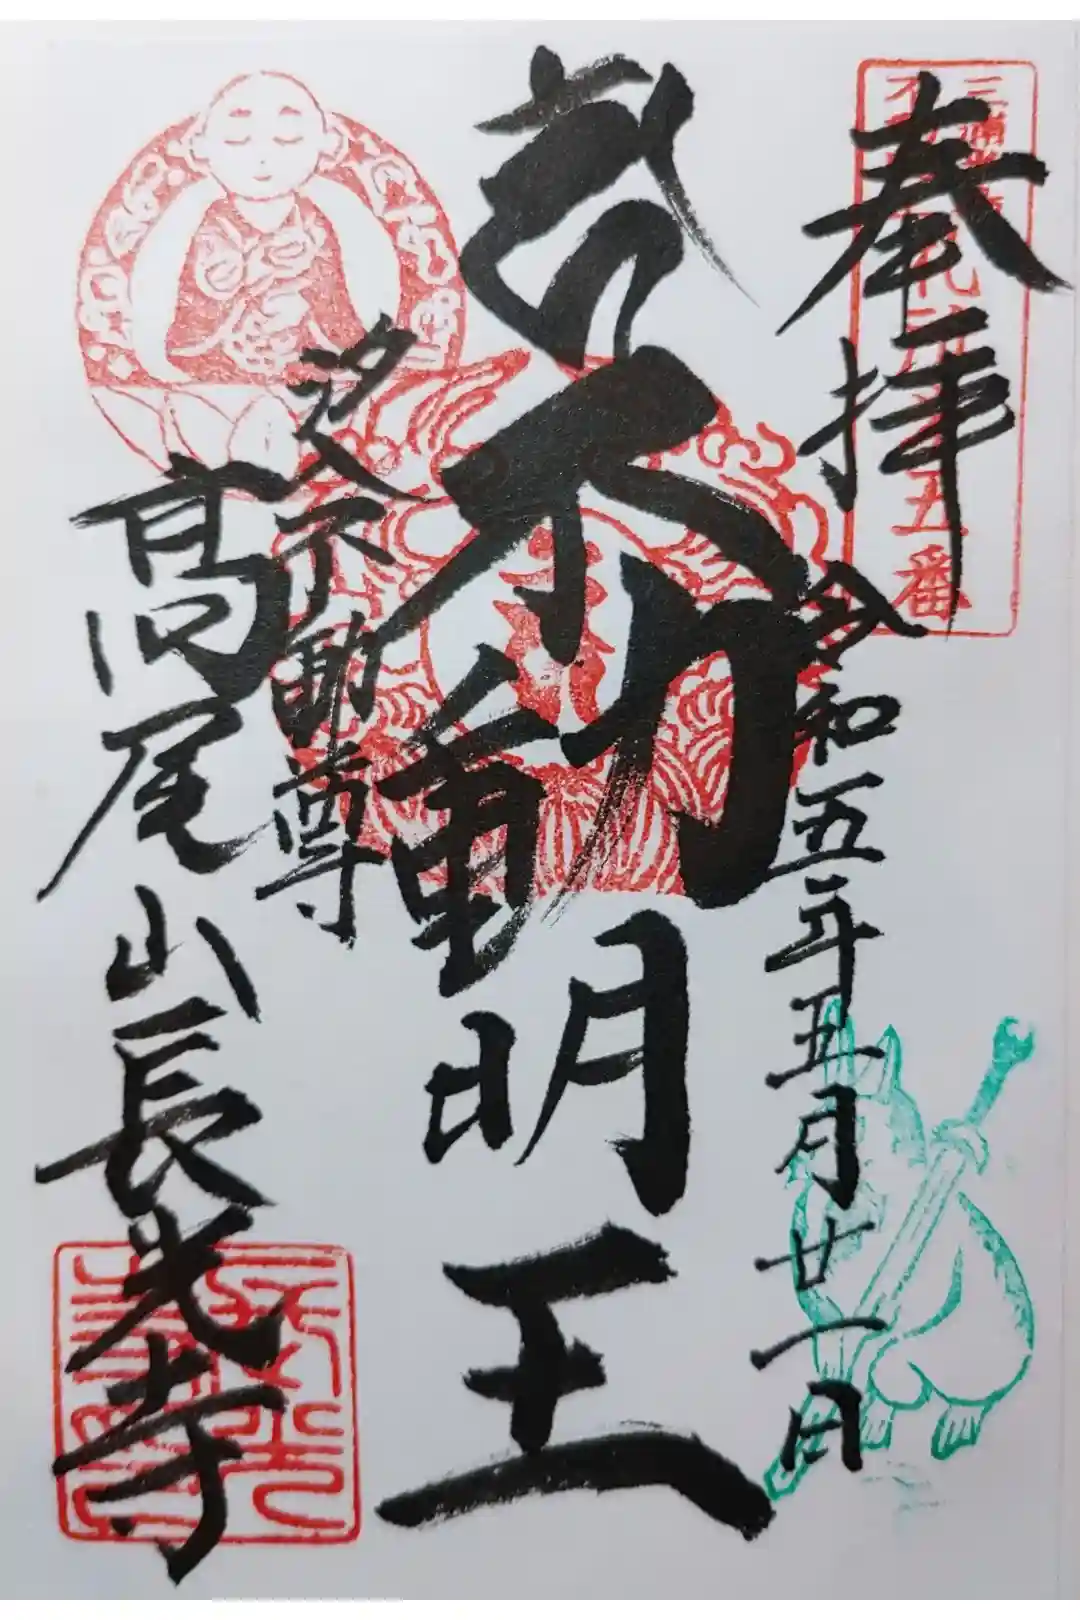 奉拝
令和五年五月廿一日
不動明王
汐入不動尊
高尾山長光寺
五番